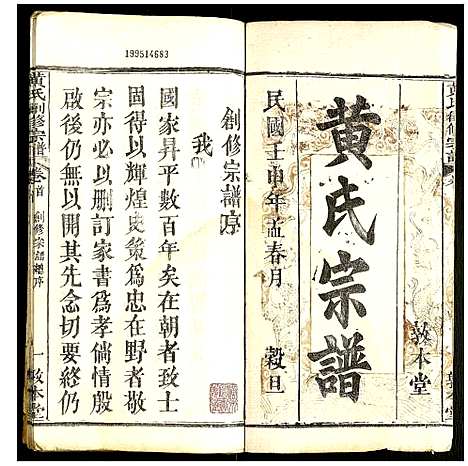 黃氏宗譜
敦本堂
民國壬申年孟春月
穀旦
199514683
創修宗譜序
我
國家昇平數百年矣在朝者致士
固得以輝煌史策為忠在野者敬
宗亦必以刪訂家書為孝倘情殷
啟後仍無以開其先念切要終仍
黃氏創修宗譜
卷首
創修宗譜總序
一
敦本堂